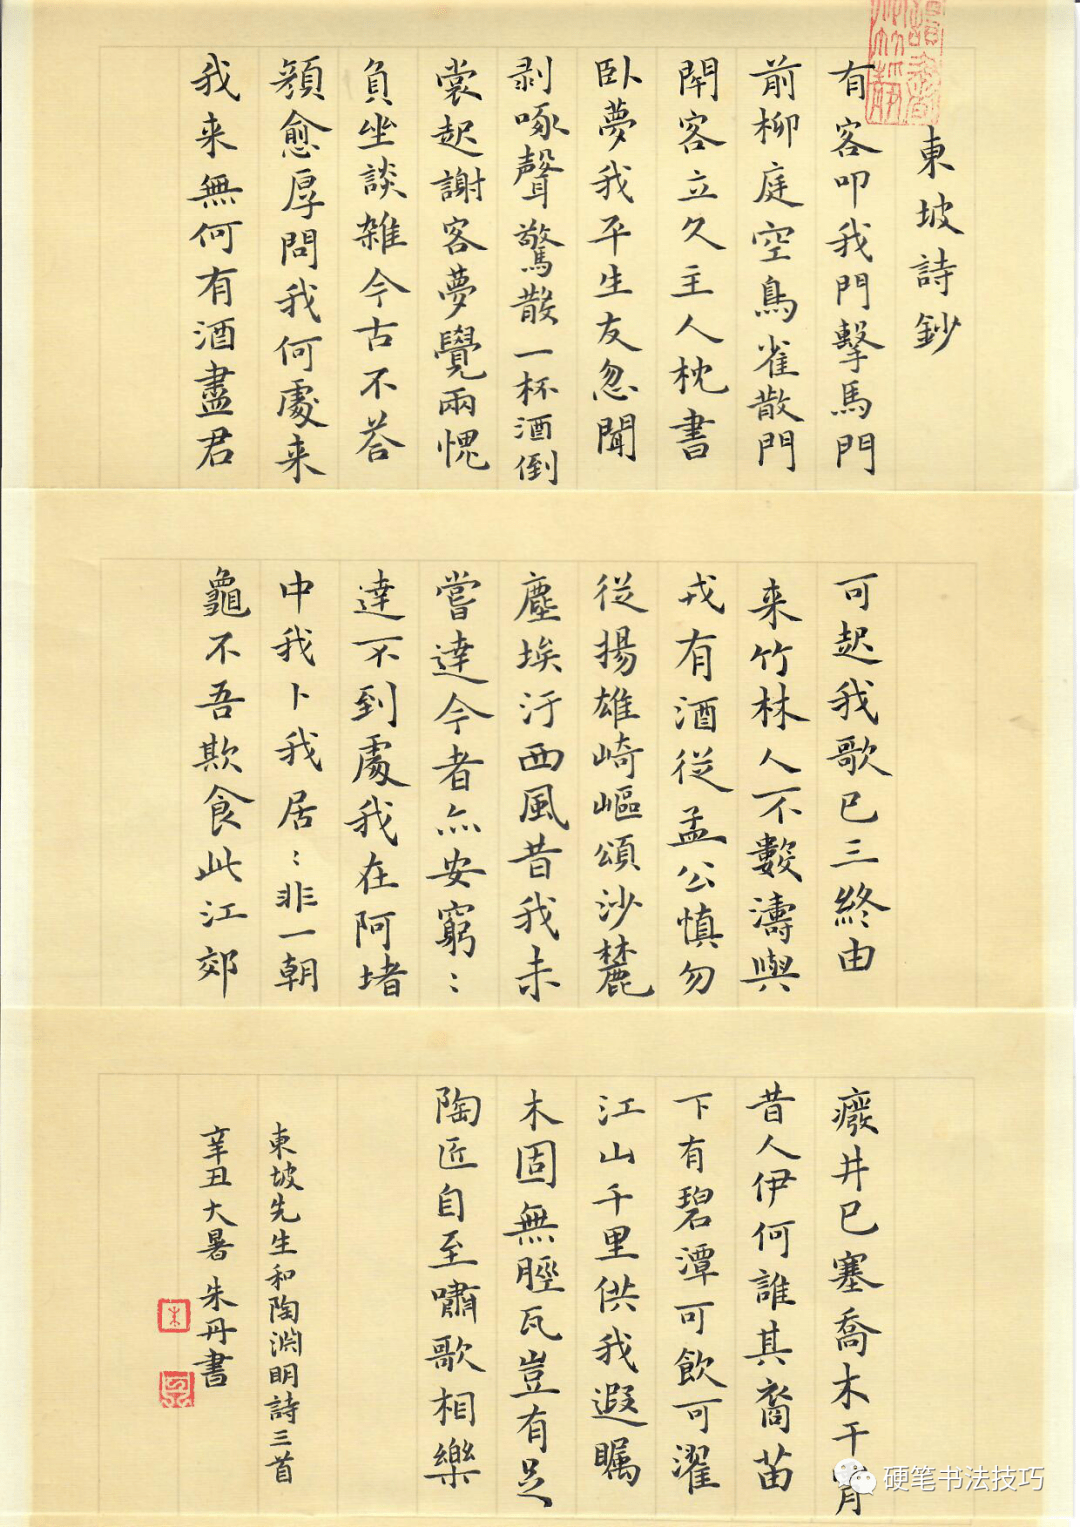 東坡詩鈔
有客叩我門擊馬門
前柳庭空鳥雀散門
閇客立久主人枕書
卧夢我平生友忽聞
剥啄聲驚散一杯酒倒
裳起謝客夢覺兩愧
負坐談雜今古不荅
顏愈厚問我何處来
我来無何有酒盡君
可起我歌已三終由
来竹林人不數濤與
戎有酒從孟公慎勿
從揚雄崎嶇頌沙麓
塵埃汙西風昔我未
嘗達今者亦安窮:
達不到處我在阿堵
中我卜我居:非一朝
龜不吾欺食此江郊
癈井已塞喬木干霄
昔人伊何誰其裔苗
下有碧潭可飲可濯
江山千里供我遐矚
木固無脛瓦豈有足
陶匠自至嘯歌相樂
東坡先生和陶淵明詩三首
辛丑大暑 朱丹書
朱
硬笔书法技巧